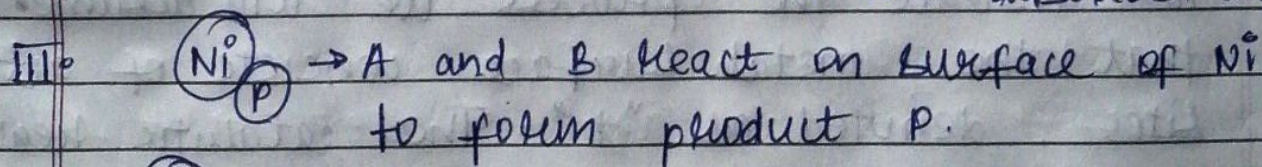 III. Ni P → A and B React on surface of Ni
to form product P.